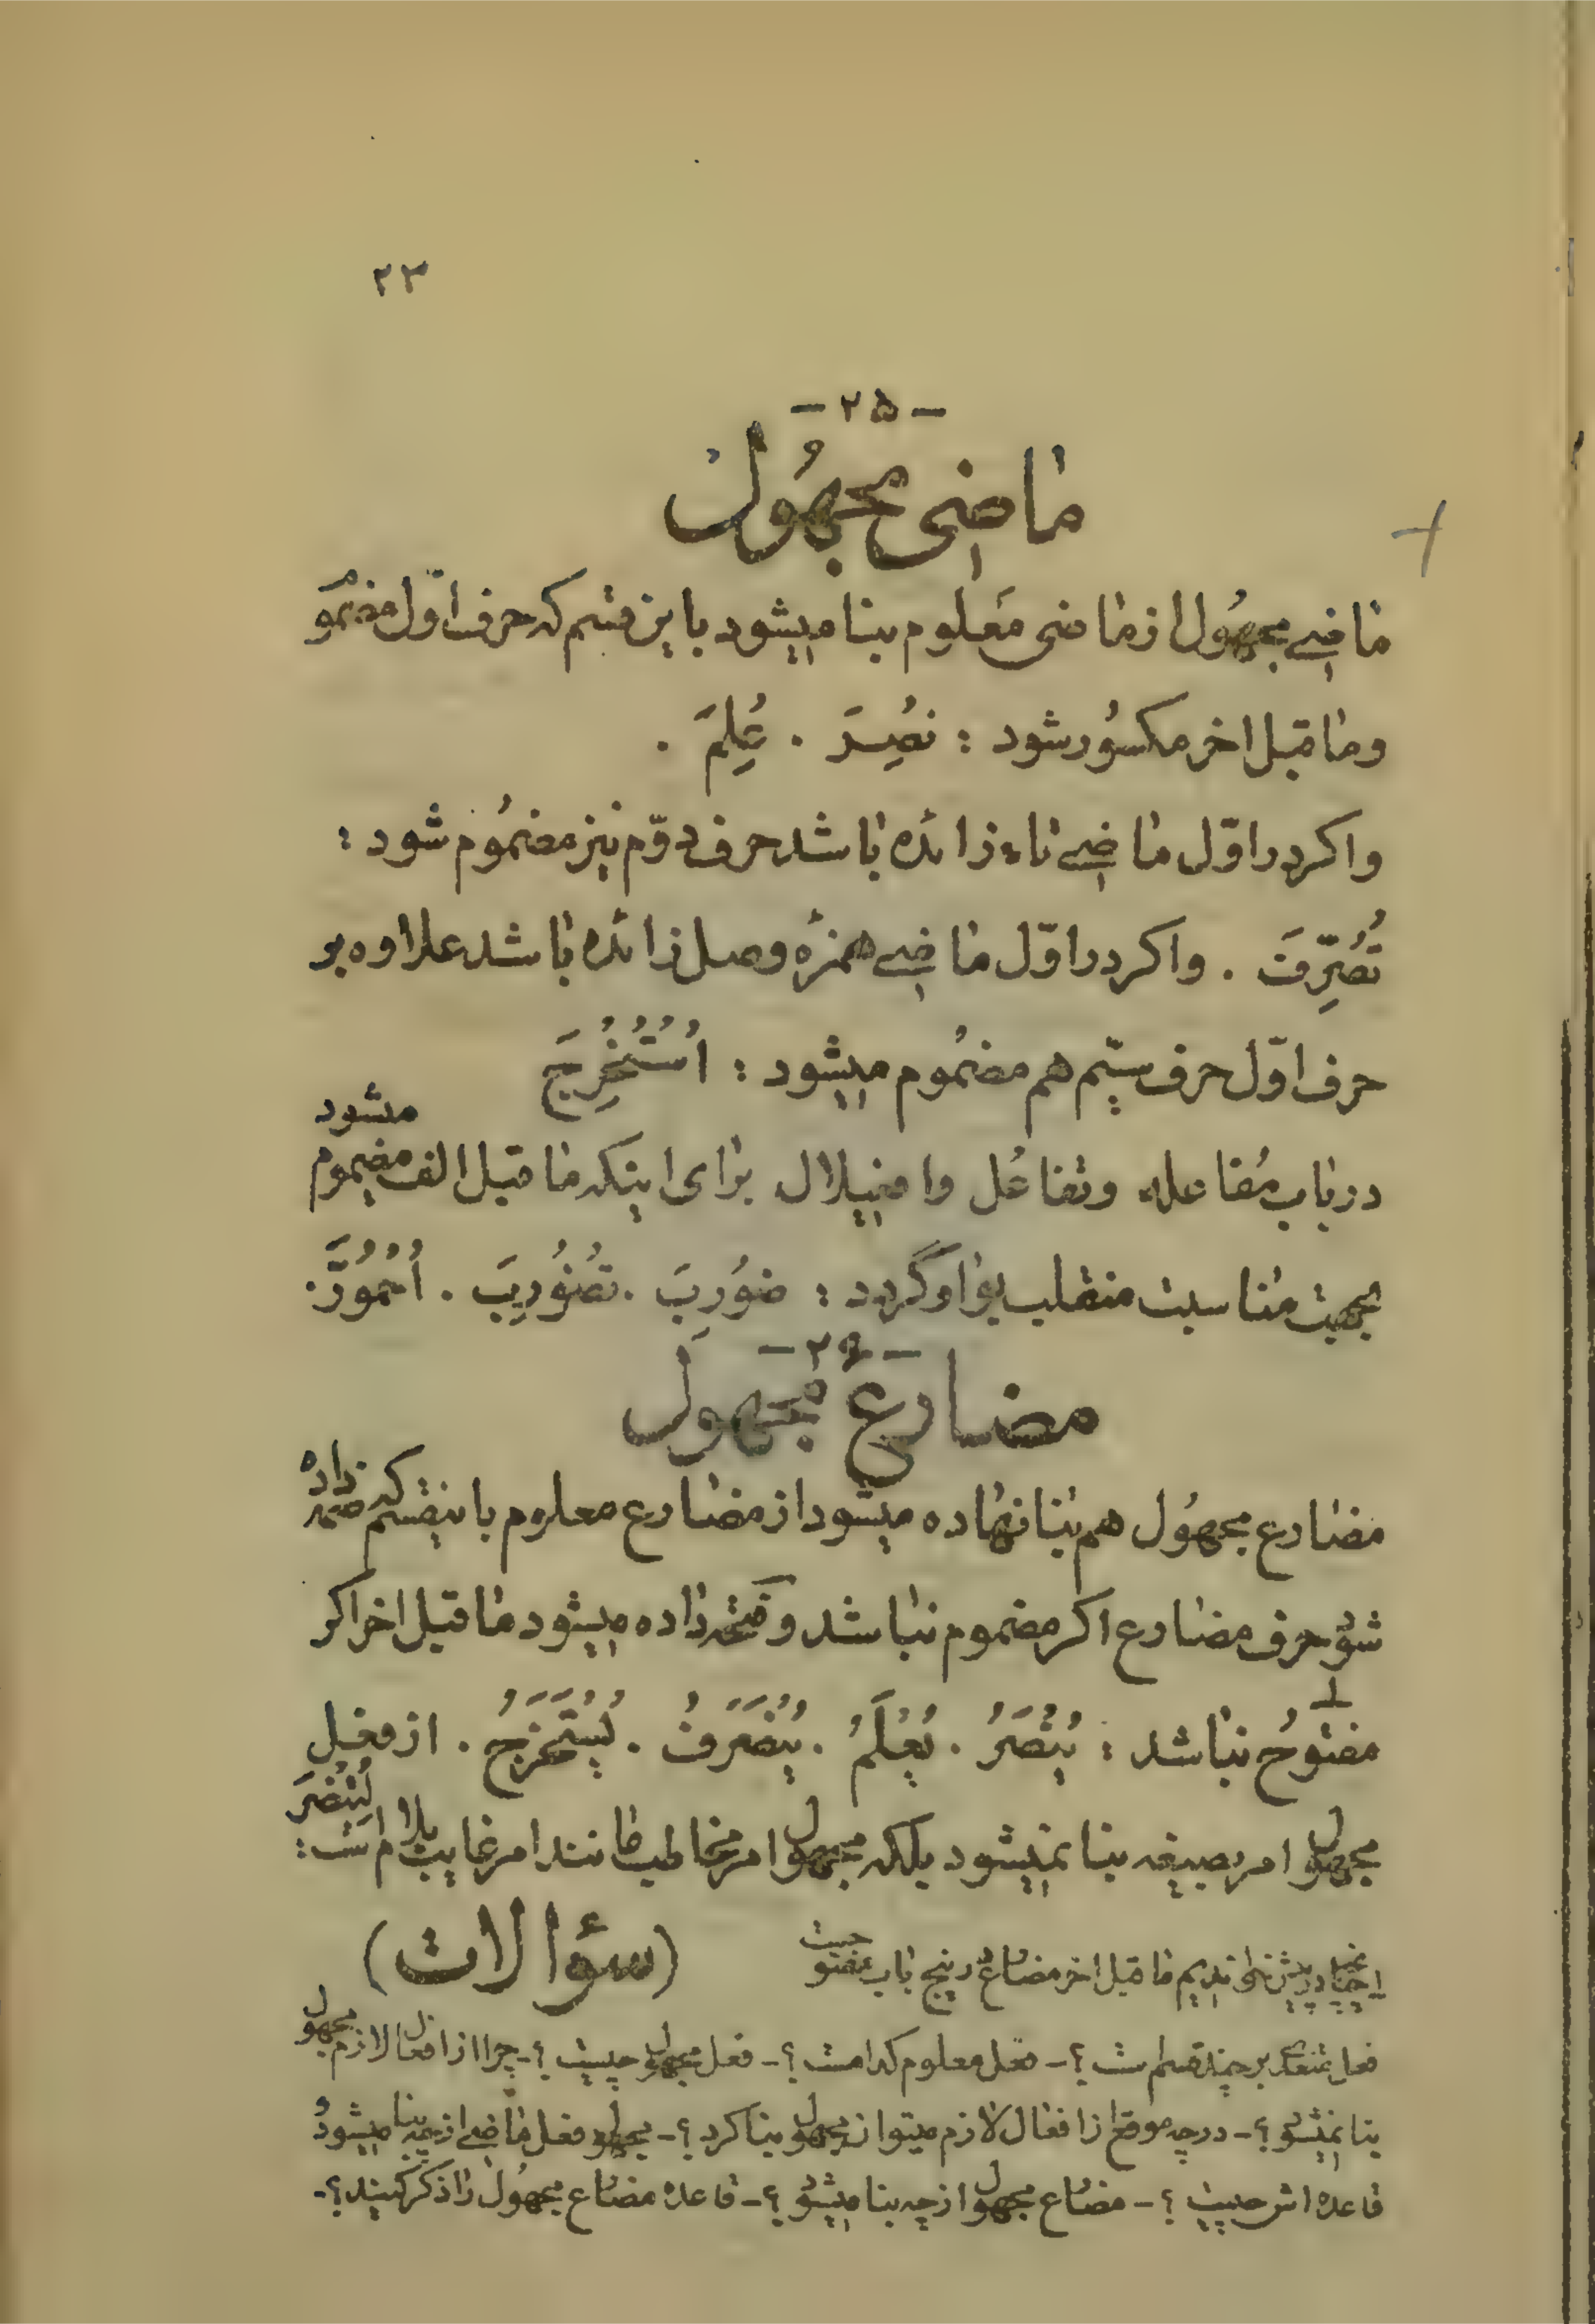 ۲۳
- ۲۵ -
ماضی مجهُول
ماضی مجهُول از ماضی مَعلوم بنا میشود باین قسم که حرف اوّل مضمُوم
و ما قبل اخر مکسُور شود : نُصِرَ . عُلِمَ .
و اکر در اوّل ماضی تاء زائده باشد حرف دوّم نیز مضمُوم شود :
تُصُرِّفَ . و اکر در اوّل ماضی همزهٔ وصل زائده باشد علاوه بر
حرف اوّل حرف سیّم هم مضمُوم میشود : اُسْتُخْرِجَ
در باب مُفاعله و تفاعُل و افعیلال برای اینکه ما قبل الف مضموم میشود
بجهت مناسبت منقلب بواو گردد : ضوُرِبَ . تُضُورِبَ . اُحْمُورَّ .
- ۲۶ -
مضارع مجهول
مضارع مجهُول هم بنا نهاده میشود از مضارع معلوم باینقسم که ضمّه داده
شود حرف مضارع اکر مضموم نباشد و فتحه داده میشود ما قبل اخر اکر
مفتوُح نباشد ۱ : یُنْصَرُ . یُعْلَمُ . یُتَصَرَّفُ . یُسْتَخْرَجُ . از فعل
مجهول امر بصیغه بنا نمیشود بلکه مجهول امر مخاطب مانند امر غایب بلام است : لِتُنْصَرَ
(سؤالات)
۱ـ در پیش خواندیم ما قبل اخر مضارع در پنج باب مفتوحست
فعل متعدّی بر چند قسم است ؟ - فعل معلوم کدامست ؟ - فعل مجهول چیست ؟ - چرا از افعال لازم مجهول
بنا نمیشود ؟ - در چه موقع از افعال لازم میتوان مجهول بنا کرد ؟ - مجهول فعل ماضی از چه بنا میشود و
قاعده اش چیست ؟ - مضارع مجهول از چه بنا میشود ؟ - قاعده مضارع مجهُول را ذکر کنید ؟ -